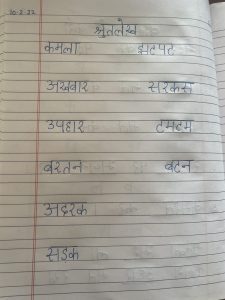 10-2-22
श्रुतलेख
कमला झटपट
अखबार सरकस
उपहार टमटम
बरतन बटन
अदरक
सडक